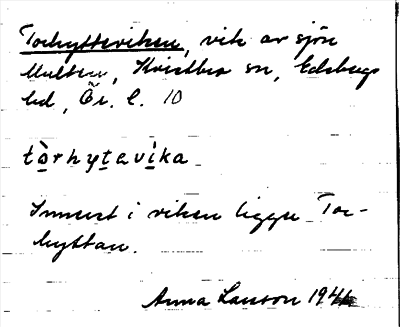 Torhytteviken, vik av sjön
Multen, Kvistbro sn, Edsbergs
hd, Ör. l. 10
tòrhytavíka
Innerst i viken ligger Tor-
hyttan.
Anna Larsson 1944